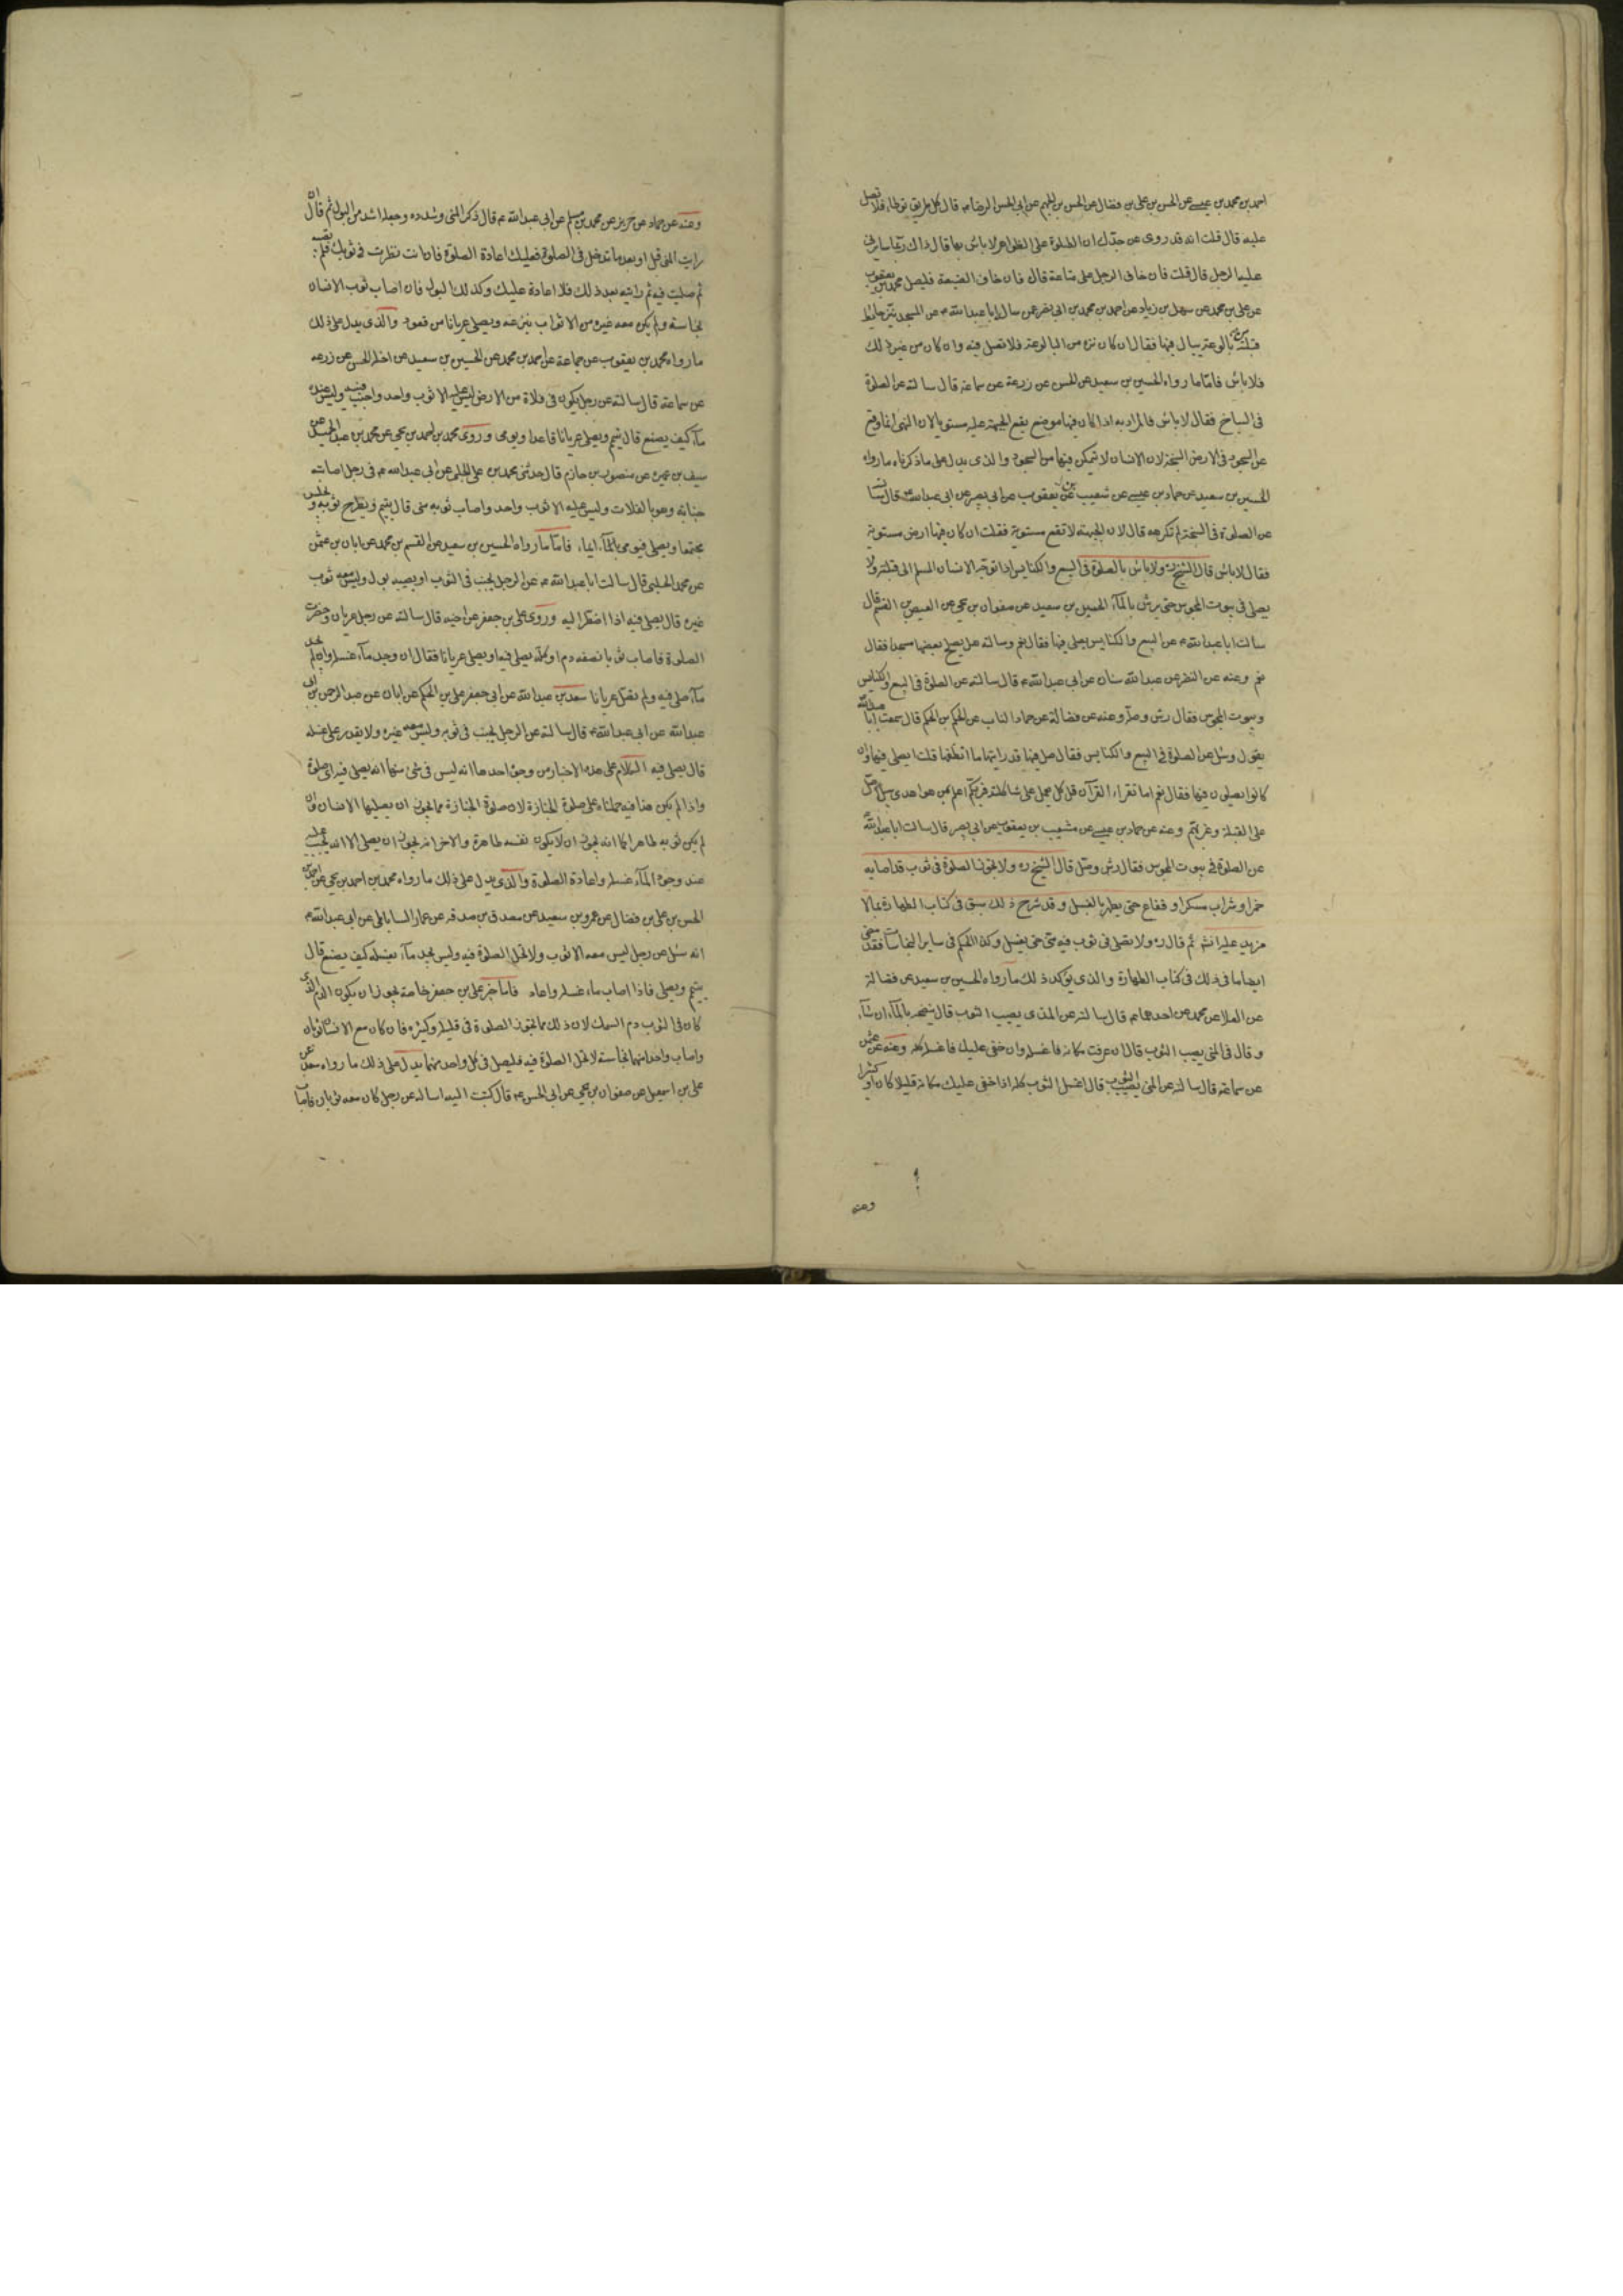 احمد بن محمد بن عيسى عن الحسن بن على بن فضال عن الحسن بن الجهم عن ابى الحسن الرضا ع قال كل طريق يوطأ فلا تصل
عليه قال قلت انه قد روى عن جدك ان الصلوة على الظواهر لا باس بها قال ذاك ربما سايرنى
عليها الرجل قال قلت فان خاف الرجل على متاعه قال فان خاف الضيعة فليصل محمد بن يعقوب
عن على بن محمد عن سهل بن زياد عن احمد بن محمد بن ابى نصر عمن سال ابا عبد الله ع عن المسجد ينز حايط
قبلته من بالوعة يبال فيها فقال ان كان نزه من البالوعة فلا تصل فيه وان كان من غير ذلك
فلا باس فاما ما رواه الحسين بن سعيد عن الحسن عن زرعة عن سماعة قال سالته عن الصلوة
فى السباخ فقال لا باس فالمراد به اذا كان فيها موضع يقع الجبهة عليه مستويا لان النهى انما وقع
عن السجود فى الارض السبخة لان الانسان لا يتمكن فيها من السجود والذى يدل على ما ذكرناه ما رواه
الحسين بن سعيد عن حماد بن عيسى عن شعيب بن يعقوب عن ابى بصير عن ابى عبد الله ع قال سالته
عن الصلوة فى السبخة لم تكرهه قال لان الجبهة لا تقع مستوية فقلت ان كان فيها ارض مستوية
فقال لا باس قال الشيخ ره ولا باس بالصلوة فى البيع والكنايس اذا توجه الانسان المسلم الى قبلته ولا
يصلى فى بيوت المجوس حتى يرش بالمآء الحسين بن سعيد عن صفوان بن يحيى عن العيص بن القسم قال
سالت ابا عبد الله ع عن البيع والكنايس يصلى فيها فقال نعم وسالته هل يصلح بعضها مسجدا فقال
نعم وعنه عن النضر عن عبد الله سنان عن ابى عبد الله ع قال سالته عن الصلوة فى البيع والكنايس
وبيوت المجوس فقال رش وصل وعنه عن فضالة عن حماد الناب عن الحكم بن الحكم قال سمعت ابا عبد الله
يقول وسئل عن الصلوة فى البيع والكنايس فقال صل فيها قد رايتها ما انظفها قلت ايصلى فيها وان
كانوا يصلون فيها فقال نعم اما تقراء القرآن قل كل يعمل على شاكلته فربكم اعلم بمن هو اهدى سبيلا صل
على القبلة وغربهم وعنه عن حماد بن عيسى عن شعيب بن يعقوب عن ابى بصير قال سالت ابا عبد الله
عن الصلوة فى بيوت المجوس فقال رش وصل قال الشيخ ره ولا تجوز الصلوة فى ثوب قد اصابه
خمر او شراب مسكر او فقاع حتى يطهر بالغسل وقد شرح ذلك سبق فى كتاب الطهارة بما لا
مزيد عليه انشا ثم قال ره ولا تصلى فى ثوب فيه منى حتى يغسل وكذا الحكم فى ساير النجاسات فقد مضى
ايضا ما فى ذلك فى كتاب الطهارة والذى يوكد ذلك ما رواه الحسين بن سعيد عن فضالة
عن العلا عن محمد عن احدهما ع قال سالته عن المذى يصيب الثوب قال ينضحه بالمآء ان شآء
وقال فى المنى يصيب الثوب قال ان عرفت مكانه فاغسله وان خفى عليك فاغسله كله وعنه عن عثمن
عن سماعة قال سالته عن المنى يصيب الثوب قال اغسل الثوب كله اذا خفى عليك مكانه قليلا كان او كثيرا
وعنه
وعنه عن حماد عن حريز عن محمد بن مسلم عن ابى عبد الله ع قال ذكر المنى وشدده وجعله اشد من البول ثم قال ان
رايت المنى قبل او بعد ما تدخل فى الصلوة فعليك اعادة الصلوة فان انت نظرت فى ثوبك فلم تصبه
ثم صليت فيه ثم رايته بعد ذلك فلا اعادة عليك وكذلك البول فان اصاب ثوب الانسان
نجاسة ولم يكن معه غيره من الاثواب نزعه ويصلى عريانا من قعود والذى يدل على ذلك
ما رواه محمد بن يعقوب عن جماعة عن احمد بن محمد عن الحسين بن سعيد عن اخيه الحسن عن زرعه
عن سماعة قال سالته عن رجل يكون فى فلاة من الارض ليس عليه الا ثوب واحد واجنب فيه وليس عنده
مآء كيف يصنع قال تيمم ويصلى عريانا قاعدا ويومى وروى محمد بن احمد بن يحيى عن محمد بن عبد الحميد عن
سيف بن عميره عن منصور بن حازم قال حدثنى محمد بن على الحلبى عن ابى عبد الله ع فى رجل اصابته
جنابة وهو بالفلات وليس عليه الا ثوب واحد واصاب ثوبه منى قال يتيمم ويطرح ثوبه ويجلس
مجتمعا ويصلى فيومى بالمآء ايماء فاما ما رواه الحسين بن سعيد عن القسم بن محمد عن ابان بن عثمن
عن محمد الحلبى قال سالت ابا عبد الله ع عن الرجل يجنب فى الثوب او يصيبه بول وليس معه ثوب
غيره قال يصلى فيه اذا اضطر اليه وروى على بن جعفر عن اخيه قال سالته عن رجل عريان وحضرت
الصلوة فاصاب ثوبا نصفه دم او كله يصلى فيه او يصلى عريانا فقال ان وجد مآء غسله وان لم يجد
مآء صلى فيه ولم يصل عريانا سعد بن عبد الله عن ابى جعفر على بن الحكم عن ابان عن عبد الرحمن بن ابى
عبد الله عن ابى عبد الله ع قال سالته عن الرجل يجنب فى ثوبه وليس معه غيره ولا يقدر على غسله
قال يصلى فيه الكلام على هذه الاخبار من وجوه احدها انه ليس فى شئ منها انه يصلى فيه اى صلوة
واذا لم يكن هذا فيه حملناه على صلوة الجنازة لان صلوة الجنازة مما يجوز ان يصليها الانسان وان
لم يكن ثوبه طاهرا كما انه يجوز ان لا يكون نفسه طاهرة والاخر انه يجوز ان يصلى الا انه يجب عليه
عند وجود المآء غسله واعادة الصلوة والذى يدل على ذلك ما رواه محمد بن احمد بن يحيى عن احمد بن
الحسن بن على بن فضال عن عمرو بن سعيد عن مصدق بن صدقه عن عمار الساباطى عن ابى عبد الله ع
انه سئل عن رجل ليس معه الا ثوب ولا تحل الصلوة فيه وليس يجد مآء يغسله كيف يصنع قال
يتيمم ويصلى فاذا اصاب ماء غسله واعاد فاما خبر على بن جعفر خاصة يجوز ان يكون الدم الذى
كان فى الثوب دم السمك لان ذلك مما تجوز الصلوة فى قليله وكثيره فان كان مع الانسان ثوبان
واصاب واحدا منهما نجاسة لا تحل الصلوة فيه فليصل فى كل واحد منهما يدل على ذلك ما رواه سعد عن
على بن اسمعيل عن صفوان بن يحيى عن ابى الحسن ع قال كتبت اليه اساله عن رجل كان معه ثوبان فاصاب